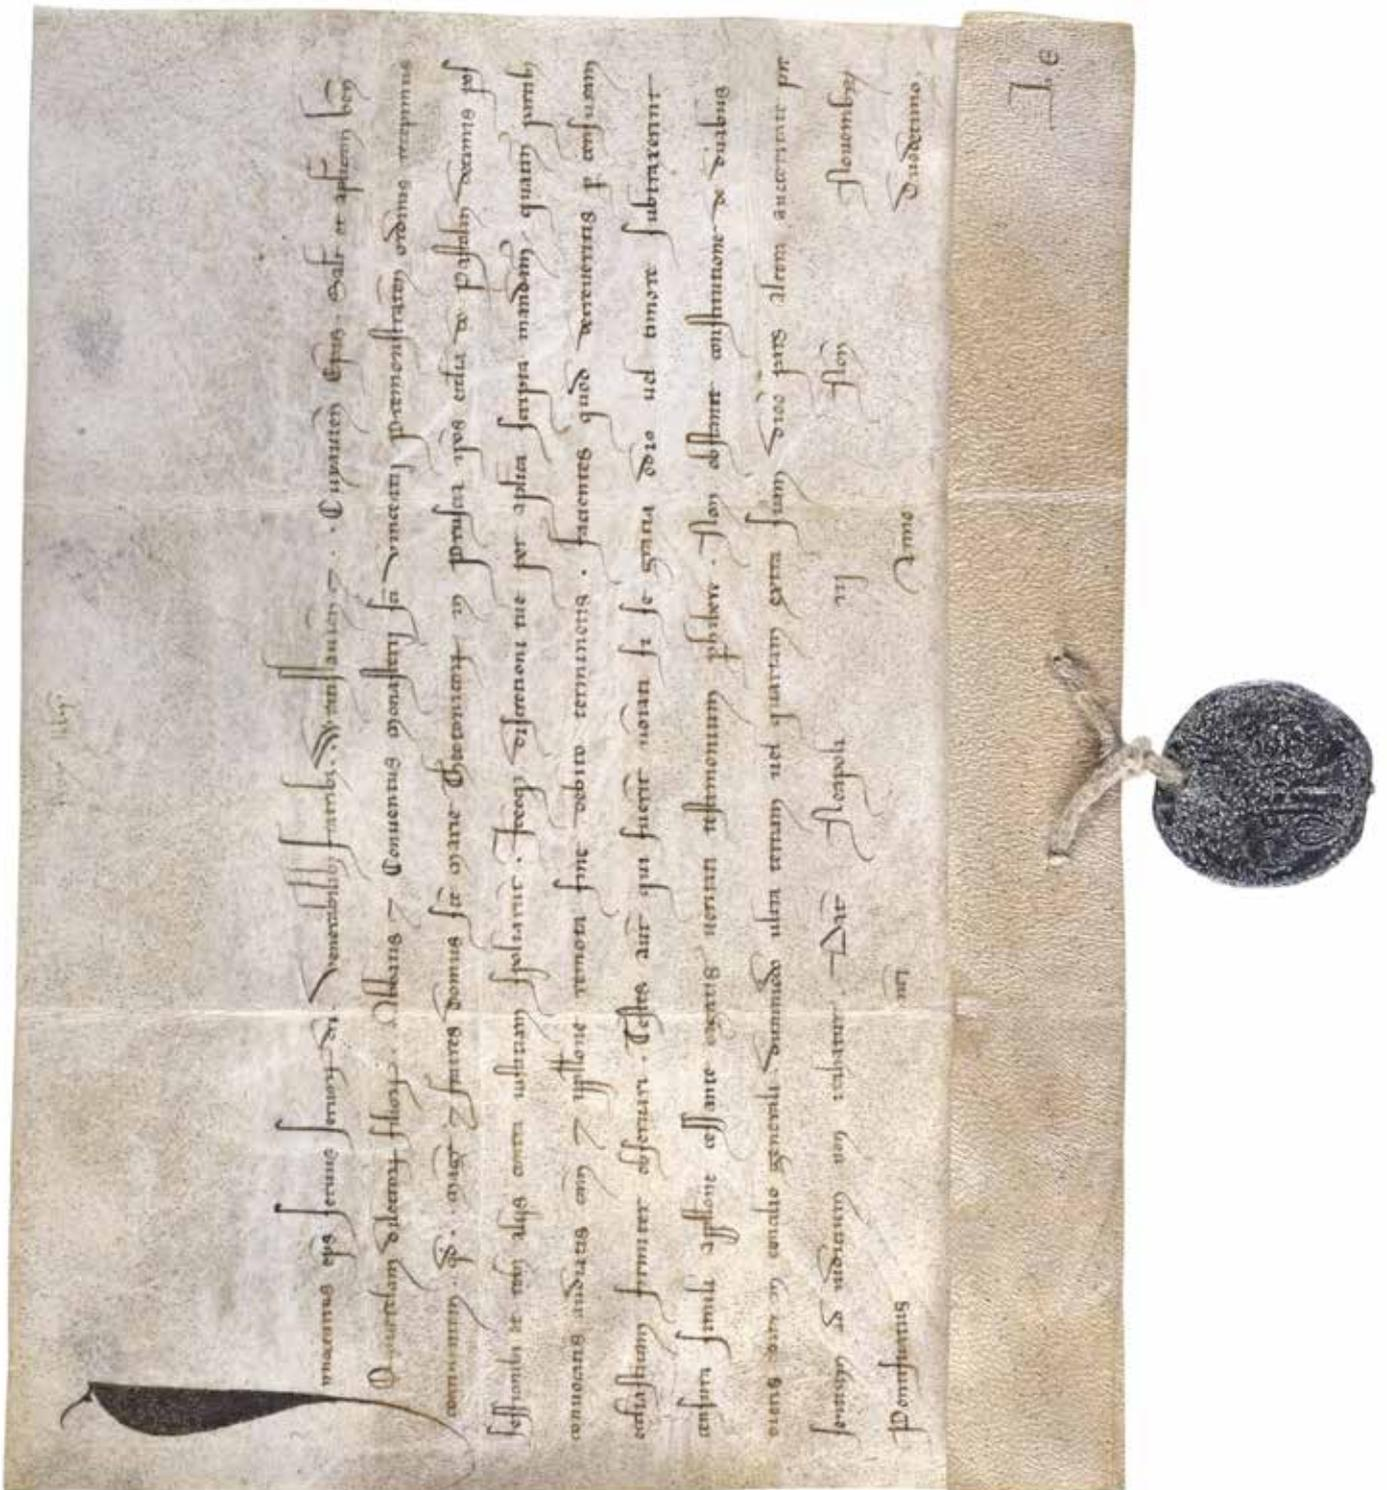 Innocentius eps seruus seruoꝝ di. Venerabilibꝫ fratribꝫ. Wratislauien̄ ⁊ . Cuiauien̄ Ep̄is. Salt̄ et aplicam ben̄
dilectoꝝ filioꝝ . Abbatis ⁊ Conuentus monasterij sc̄i Vincentij premonstraten̄ ordinis recepimus
continentem . qd . mag̃r ⁊ fratres domus sc̄e marie Theotonicoꝝ in prusia ip̄os ecclia de decimis pos
sessionibꝫ et rebꝫ alijs contra iustitiam spoliarūt . Ideoqꝫ discretioni ur̄e per aplica scripta mandam̄ . quatin̄ partibꝫ
conuocatis audiatis cām ⁊ appellone remota fine debito terminetis . facientes quod decreueritis p̲ censuram
ecclesiasticam firmiter obseruari . Testes aut̄ qui fuerint nōiati si se gratia odio uel timore subtraxerint
censura simili appellone cessante cogatis ueritati testimonium phibere . Non obstante constitutione de duabus
dietis edita in concilio generali dummodo ultra tertiam uel quartam extra suam dioc̄ pars altera auctoritate pn̄
sentium ad iudicium non trahatur . Dat̄ Neapoli iij Non̄ Nouembrꝫ
Pontificatus nr̄i Anno duodecimo.